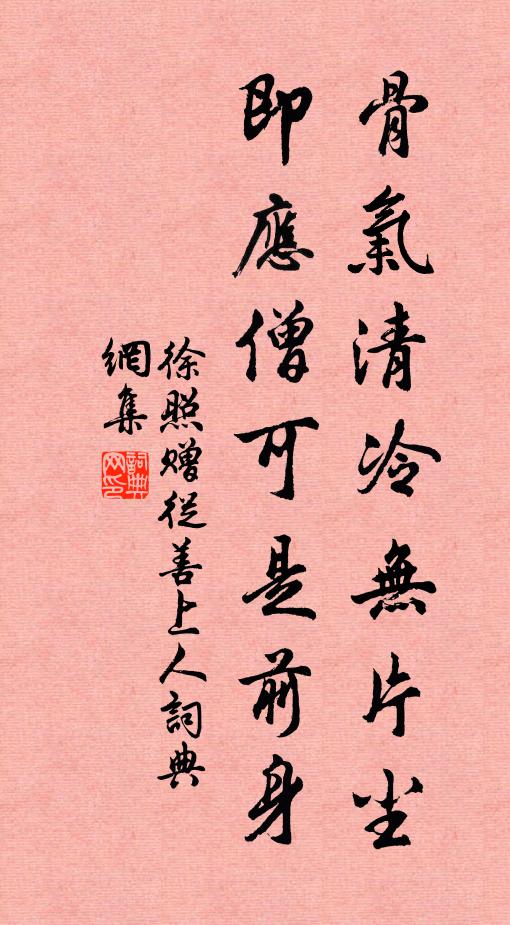 骨氣清冷無片尘
即應僧可是前身
徐照贈從善上人詞典
網集
詞典网印